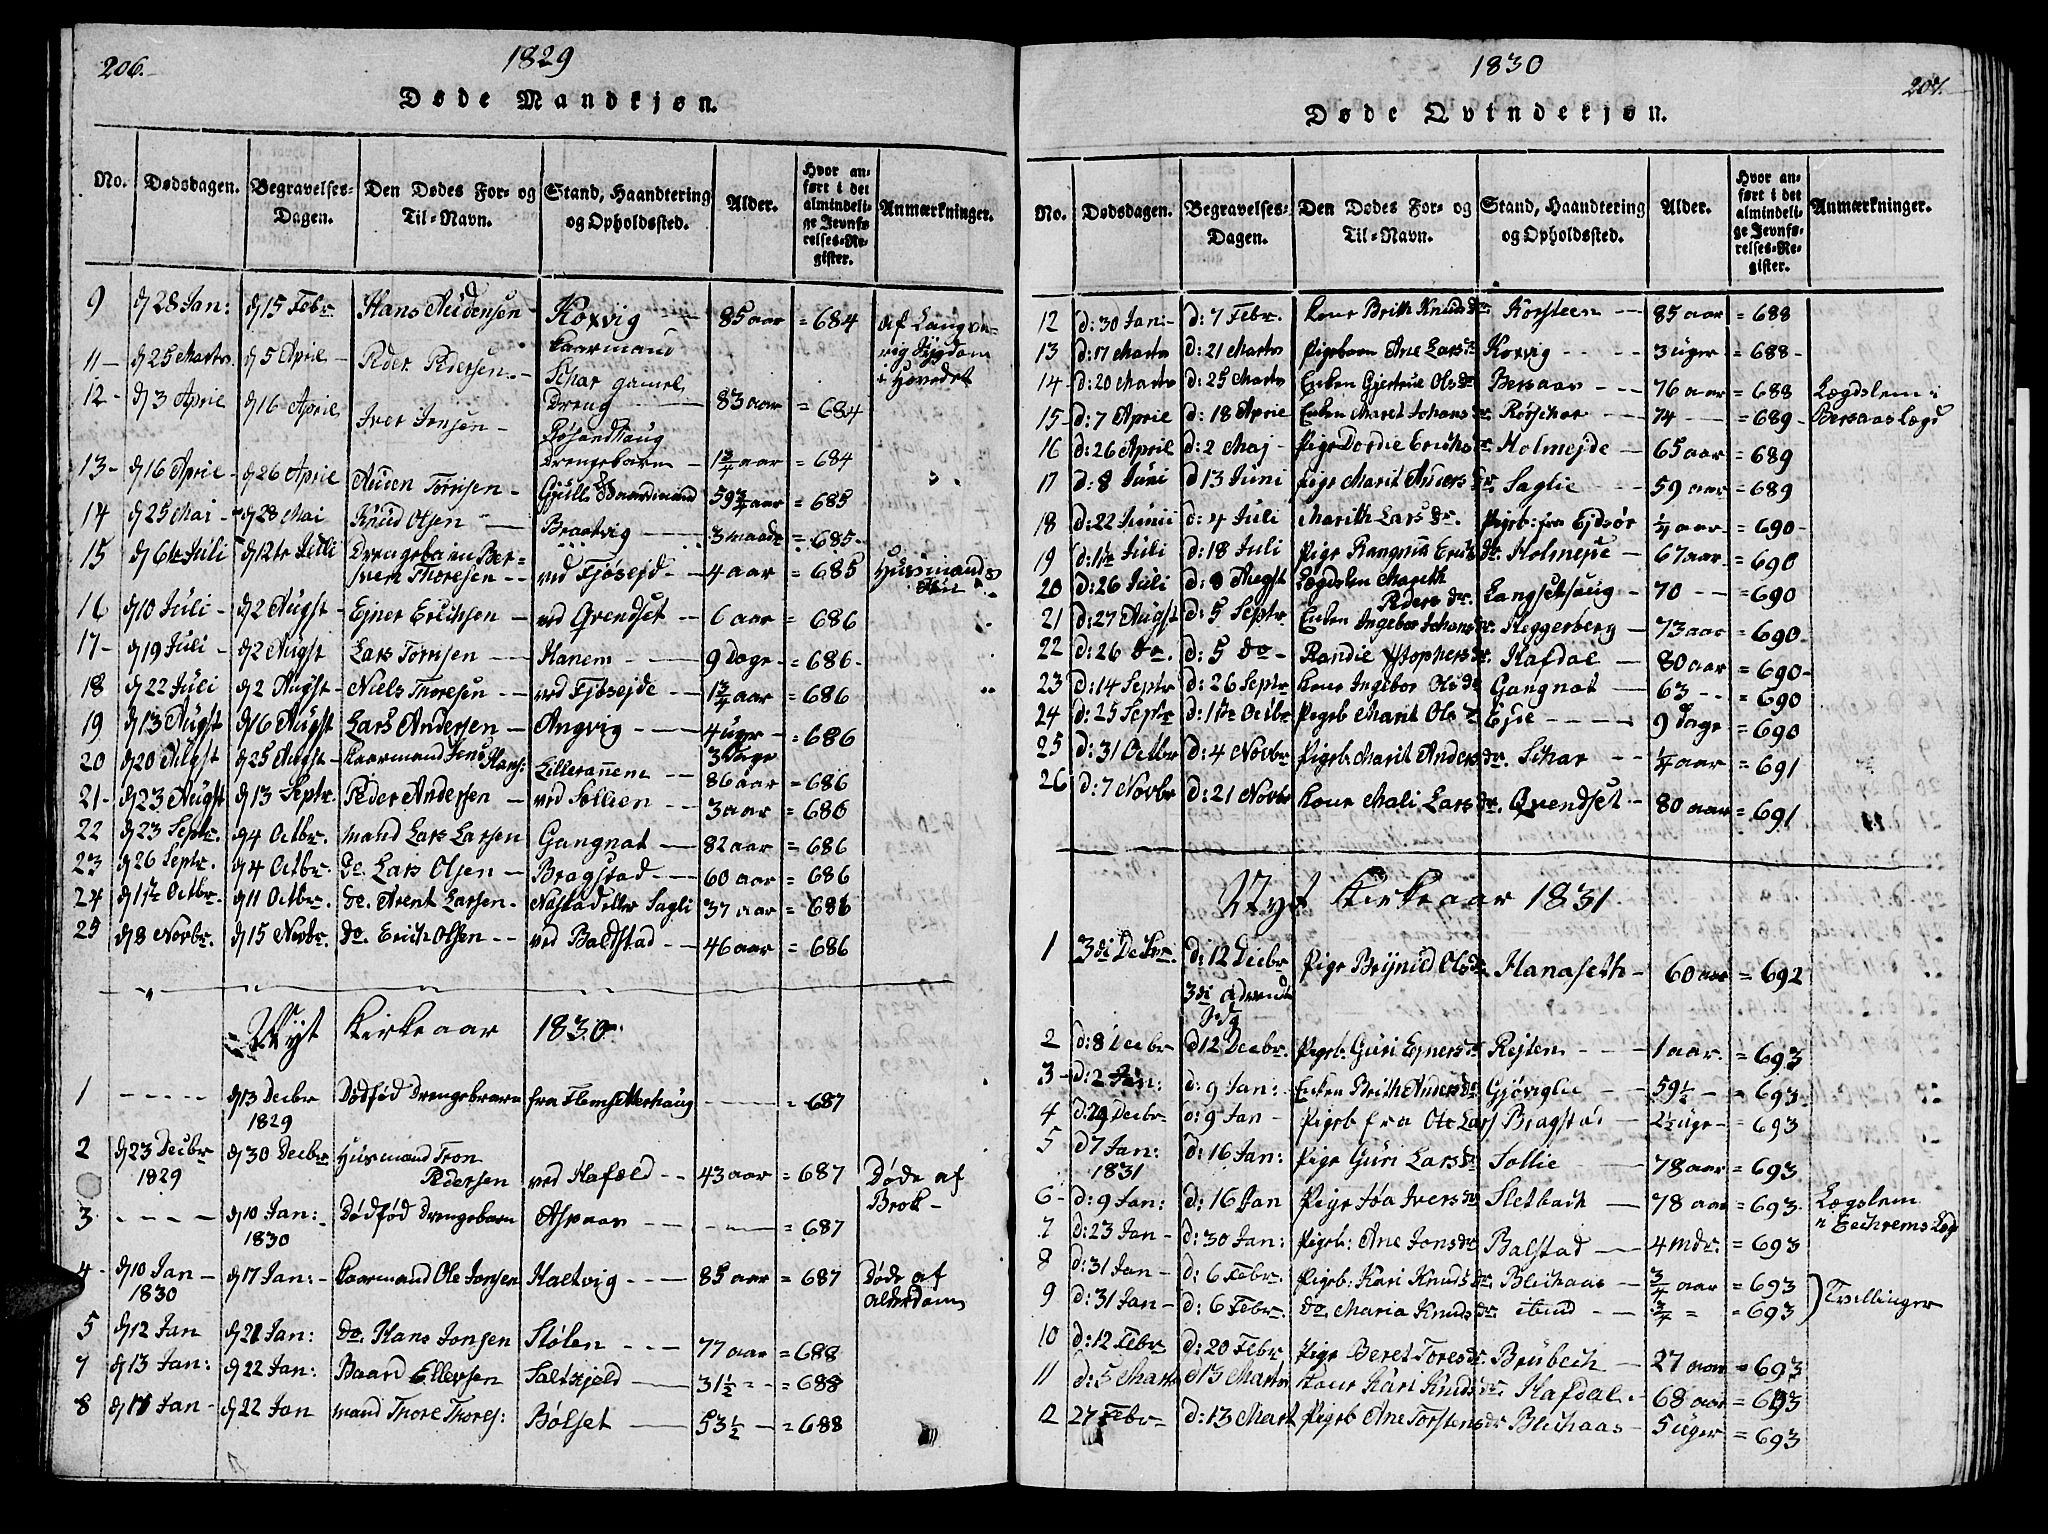 206.
1829
Døde Mandkjøn.
No. Dødsdagen. Begravelses-Dagen. Den Dødes For- og Til-Navn. Stand, Haandtering og Opholdssted. Alder. Hvor anført i det almindelige Jevnførelses-Register. Anmærkninger.
9 d 28 Jan: d 15 Febr Hans Audensen Koxvig 85 aar = 684 af
Kaarmand
11 d 25 Marts d 5 April Peder Pedersen Schar gamel
+ Hovedet
12 d 3 April d 16 April Iver Jonsen Dreng 83 aar = 684
Drengebarn 1 3/4 aar = 684
13 d 16 April d 26 April Auden Tornsen Gjulle 59 3/4 aar = 685
14 d 25 Mai d 28 Mai Knud Olsen Braatvig 3 maade = 685
15 d 6te Juli d 12te Julli Drengebarn Ber-
sven Thoresen ved Fjøsejd 4 aar = 685 Huusmands
16 d 10 Juli d 2 Augst Ejner Erichsen ved Qvendset 6 aar = 686
17 d 19 Juli d 2 Augst Lars Tornsen Hanem 9 Dage = 686
18 d 22 Juli d 2 Augst Niels Thoresen ved Fjøsejde 1 3/4 aar = 686
19 d 13 Augst d 16 Augst Lars Andersen Angvig 4 uger = 686
3 Dage
20 d 20 Augst d 25 Augst Kaarmand Jens Hans: Lilleranem 86 aar = 686
21 d 23 Augst d 13 Septr. Peder Andersen ved Sollien 3 aar = 686
22 d 23 Septr. d 4 Octbr. mand Lars Larsen Gangnat 82 aar = 686
23 d 26 Septr. d 4 Octbr. do. Lars Olsen Bragstad 60 aar = 686
24 d 1te Octbr. d 11 Octbr. do. Arent Larsen Sagli 37 aar = 686
25 d 8 Novbr. d 15 Novbr. do. Erich Olsen ved Baldstad 46 aar = 686
Nyt Kirkeaar 1830.
1 d 13 Decbr Dødfød Drengebarn fra Flemsetterhaug = 687
1829
2 d 23 Decbr d 30 Decbr Huusmand Tron
1829 Pedersen ved Hafæld 43 aar = 687 Døde af
Brok
3 d 10 Jan: Dødfød Drengebarn Aspaas = 687
1830
4 d 10 Jan d 17 Jan: Kaarmand Ole Jonsen Haltvig 85 aar = 687 Døde af
1830 alderdom
5 d 12 Jan d 21 Jan: do. Hans Jonsen Stølen 77 aar = 688
7 d 13 Jan: d 22 Jan: Baard Ellevsen Saltkjeld 31 1/2 = 688
8 d 17 Jan d 22 Jan mand Thore Thores: Bølset 53 1/2 = 688
1830
207.
Døde Qvindekjøn.
No. Dødsdagen. Begravelses-Dagen. Den Dødes For- og Til-Navn. Stand, Haandtering og Opholdssted. Alder. Hvor anført i det almindelige Jevnførelses-Register. Anmærkninger.
12 d: 30 Jan: d: 7 Febr. Kone Brith Knudsdr Korsteen 85 aar = 688
13 d: 17 Marts d: 21 Marts Pigebarn Ane Larsdr Koxvig 3 uger = 688
14 d: 20 Marts d: 25 Marts Enken Gjertrue Olsdr Bersaas 76 aar = 688 Lægdslem i
15 d: 7 April d: 18 April Enken Maret Johansdr Rørschar 74 = 689 Bersaas Lægd
16 d: 26 April d: 2 Maj Pige Dordie Erichsdr Holmejde 65 aar = 689
17 d: 8 Juni d 13 Juni Pige Marit Andersdr. Saglie 59 aar = 689
18 d: 22 Junii d: 4 Juli Marith Larsdr. Pigeb: fra Ejdsør 1/4 aar = 690
19 d: 11te Juli d: 18 Juli Pige Rangnild Erichsdr. Holmejde 67 aar = 690
20 d: 26 Juli d: 8 Augst Lægdslem Marith
Pedersdr. Langsethaug 70 = 690
21 d: 27 Augst d: 5 Septr. Enken Ingebor Johansdr. Heggerberg 73 aar = 690
22 d: 26 do. d: 5 do Randie Stophersdr. Hafdal 80 aar = 690
23 d: 14 Septr d: 26 Septr Kone Ingebor Olsdr Gangnat 63 = 690
24 d: 25 Septr d: 11te Octbr Pigeb Marit Olsdr Ejde 9 dage = 690
25 d: 31 Octbr d: 4 Novbr Pigeb: Marit Andersdr. Schar 1/4 aar = 691
26 d: 7 Novbr d: 21 Novbr Kone Mali Larsdr. Qvendset 80 aar = 691
Nyt Kirkeaar 1831.
1 3di Decbr. d: 12 Decbr Pige Brynild Olsdr Hanaseth 60 aar = 692
3di advends
Sdg
2 d: 8 Decbr d 12 Decbr. Pigeb. Guri Ejnersdr Rejten 1 aar = 693
3 d: 2 Jan: d: 9 Jan: Enken Brith Andersdr Gjøviglie 59 1/2 = 693
4 d: 29 Decbr d: 9 Jan Pigeb. fra Ole Lars Bragstad 2 1/2 uge = 693
5 d 7 Jan: d: 16 Jan: Pige Guri Larsdr Sollie 78 aar = 693
1831
6 d: 9 Jan: d: 16 Jan Pige Joa Iversdr Sletbach 78 aar = 693 Lægslem
7 d: 23 Jan d: 30 Jan: Pigeb: Ane Jonsdr Balstad 4 mdr. = 693
8 d: 31 Jan d: 6 Febr. Pigeb: Kari Knudsdr Blichaas 3/4 aar = 693 Tvillinger
9 d: 31 Jan d: 6 Febr. do Maria Knudsdr ibid 3/4 = = 693
10 d: 12 Febr d: 20 Febr Pige Beret Toresdr Brubech 27 aar = 693
11 d: 5 Marts d 13 Marts Kone Kari Knudsdr Hafdal 68 aar = 693
12 27 Febr d: 13 Mart Pigeb Ane Torstensdr Blichaas 5 uger = 693